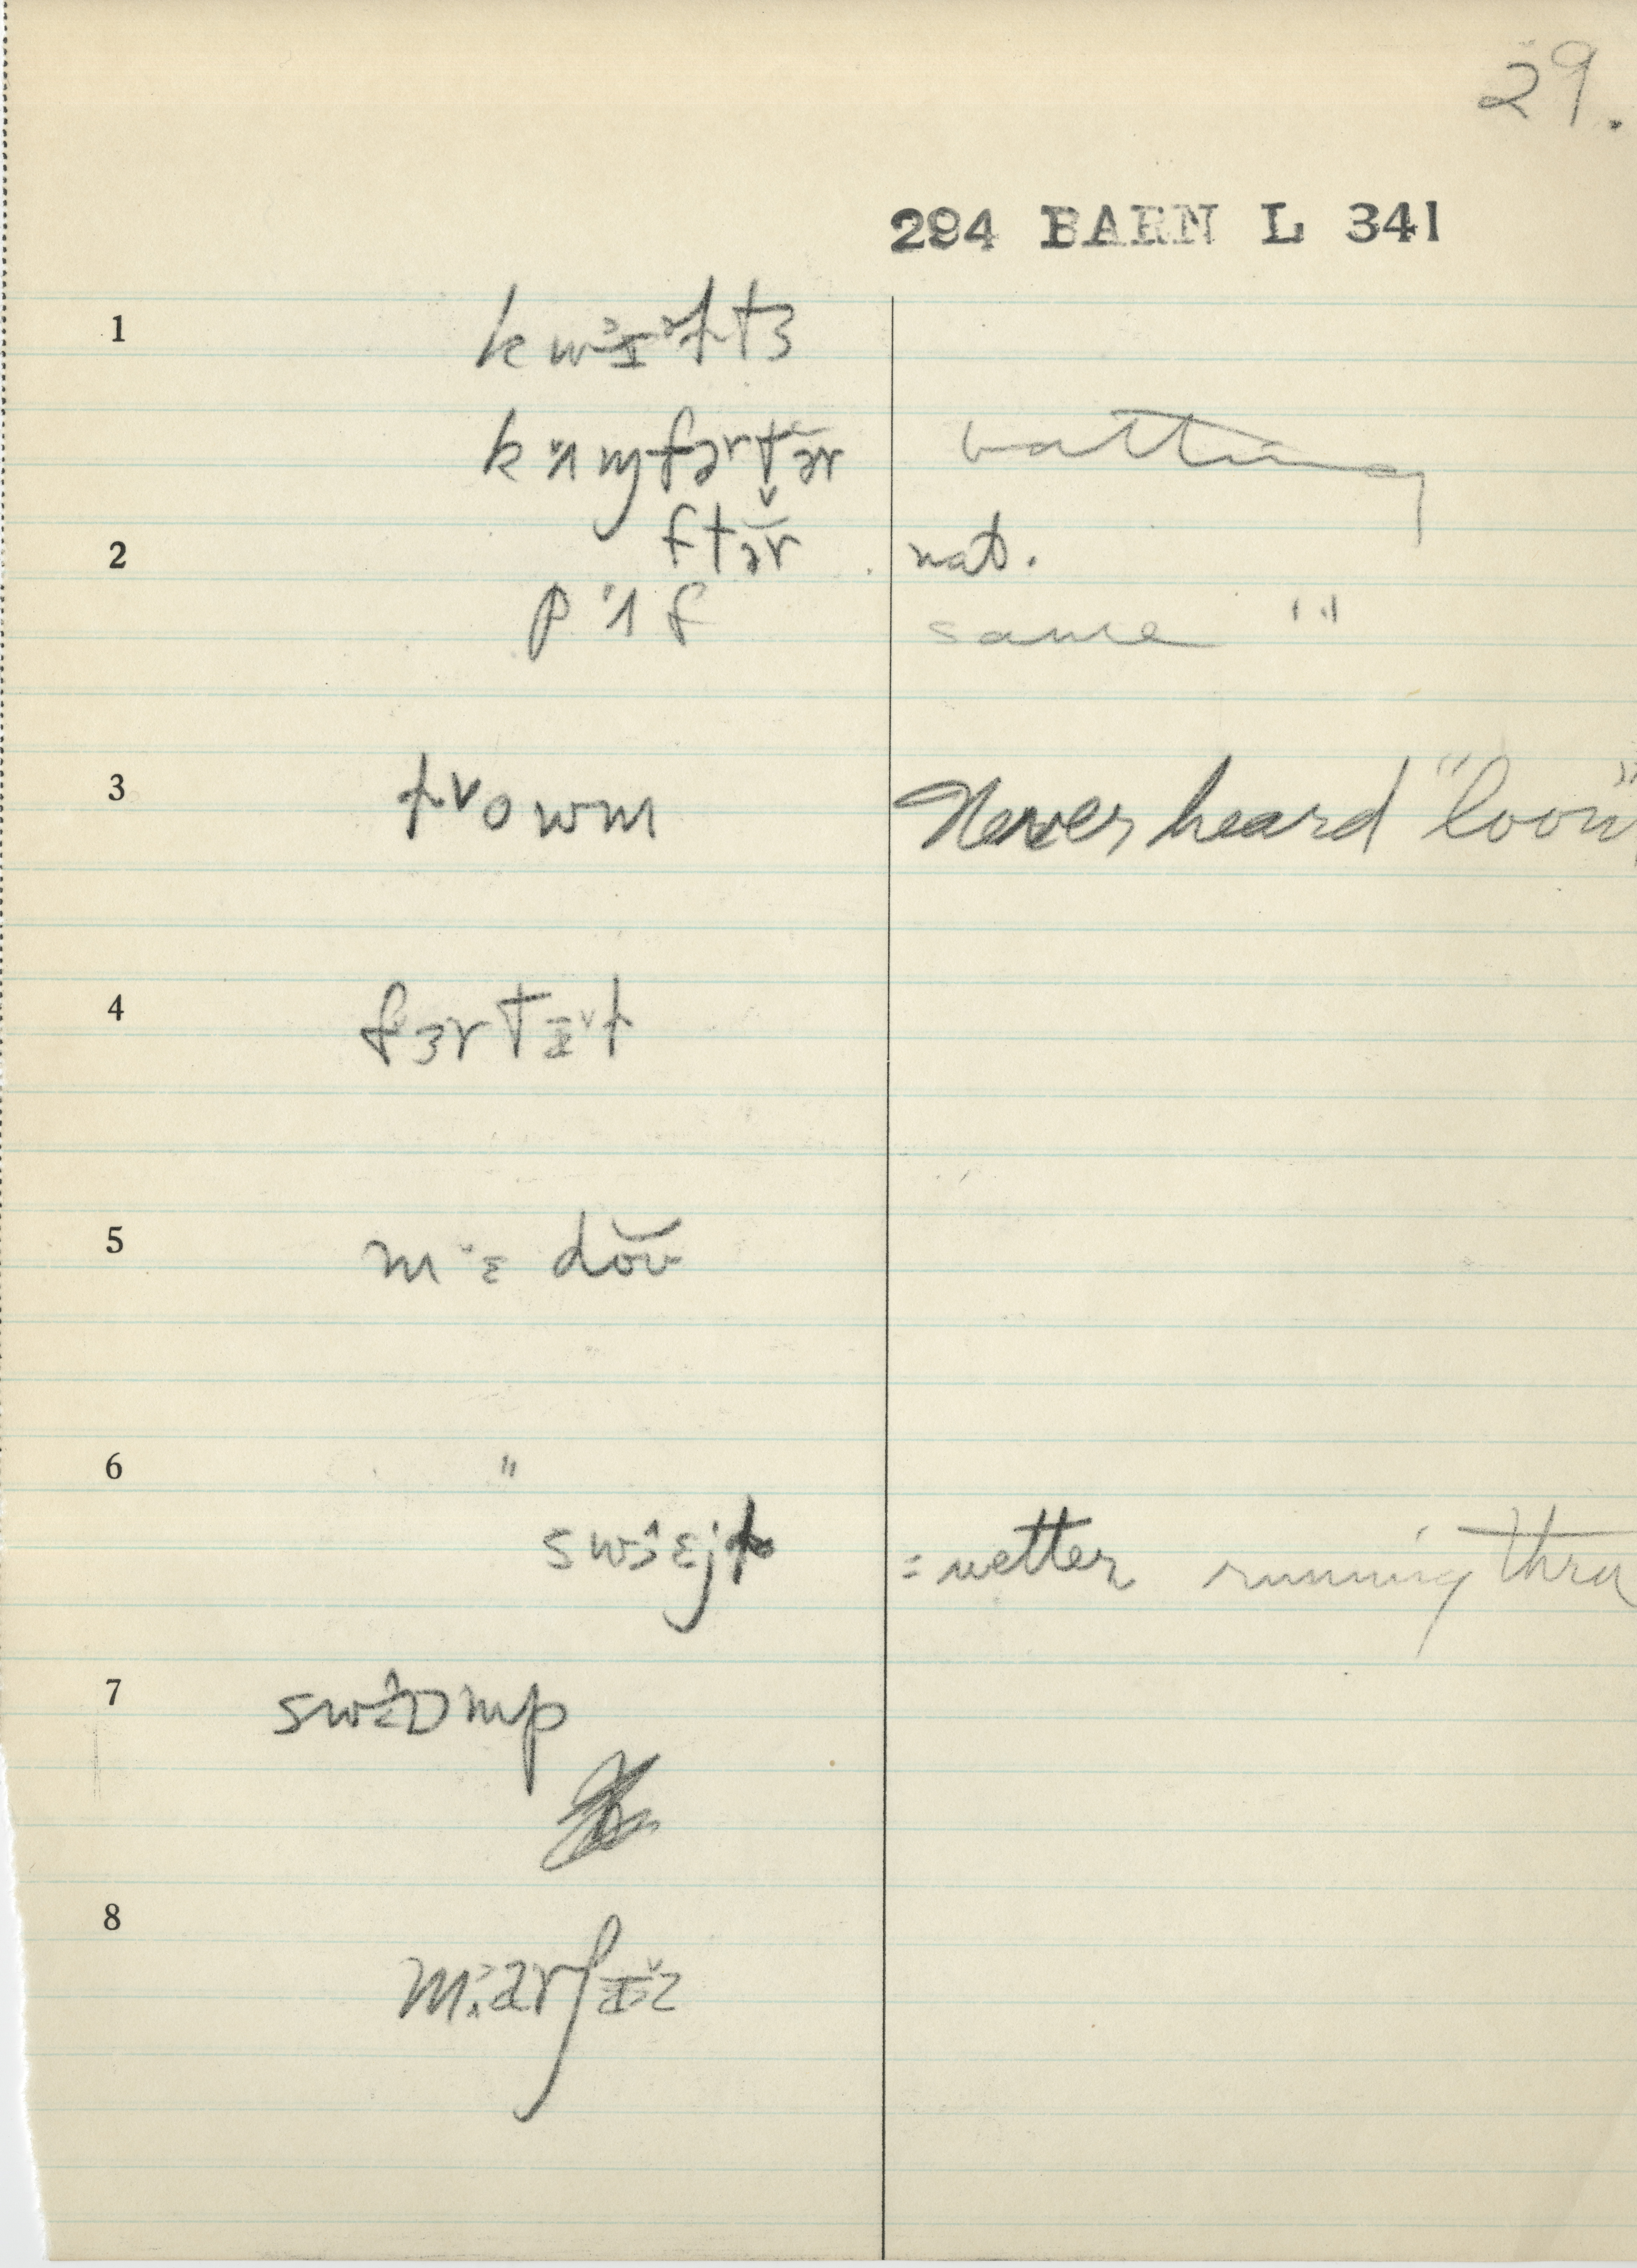 29.
294 BARN L 341
1 kwɪɫtʒ
kʌmfərtər batting
ftər
2 nat.
pʌf same "
3 ɫowm Never heard "loom"
4 fɜrtɪɫ
5 mɛdoʊ
6 "
swɛjɫ = wetter running thru
7 swɒmp
8 marʃɪz